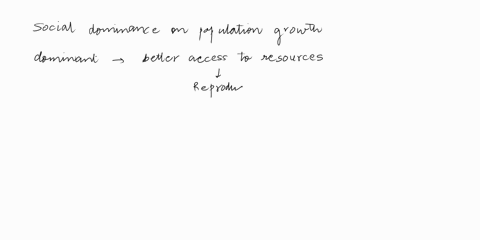 Social dominance on population growth
dominant → better access to resources
↓
Reprodu